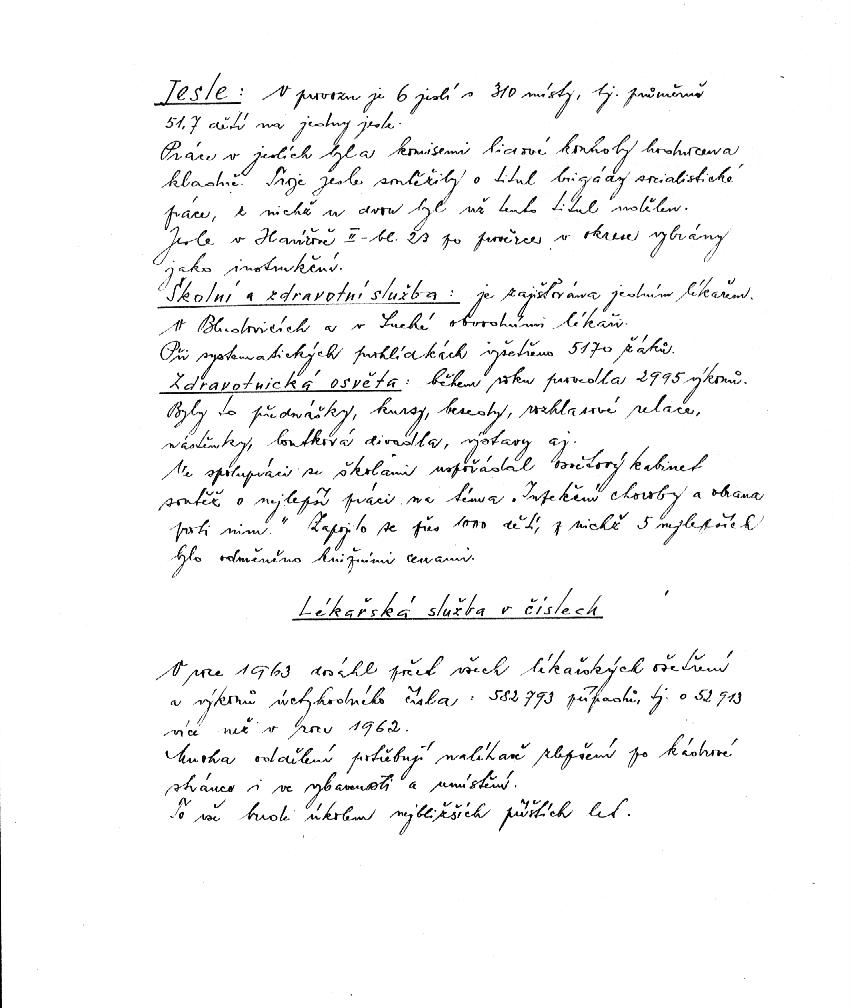 Jesle: V provozu je 6 jeslí s 310 místy, tj. průměrně
51,7 dětí na jedny jesle.
Práce v jeslích byla komisemi lidové kontroly hodnocena
kladně. Troje jesle soutěžily o titul brigády socialistické
práce, z nichž u dvou byl už tento titul udělen.
Jesle v Havířově II-bl. 23 po prověrce v okrese vybrány
jako instrukční.
Školní a zdravotní služba: je zajišťována jedním lékařem.
V Bludovicích a v Suché obvodními lékaři.
Při systematických prohlídkách vyšetřeno 5170 žáků.
Zdravotnická osvěta: během roku provedla 2995 výkonů.
Byly to přednášky, kursy, besedy, rozhlasové relace,
nástěnky, loutková divadla, výstavy aj.
Ve spolupráci se školami uspořádal osvětový kabinet
soutěž o nejlepší práci na téma „Infekční choroby a obrana
proti nim." Zapojilo se přes 1000 dětí, z nichž 5 nejlepších
bylo odměněno knižními cenami.
Lékařská služba v číslech
V roce 1963 dosáhl počet všech lékařských ošetření
a výkonů úctyhodného čísla: 582 793 případů, tj. o 52 913
více než v roce 1962.
Mnoha oddělení potřebují naléhavě zlepšení po kádrové
stránce i ve vybavenosti a umístění.
To vše bude úkolem nejbližších příštích let.